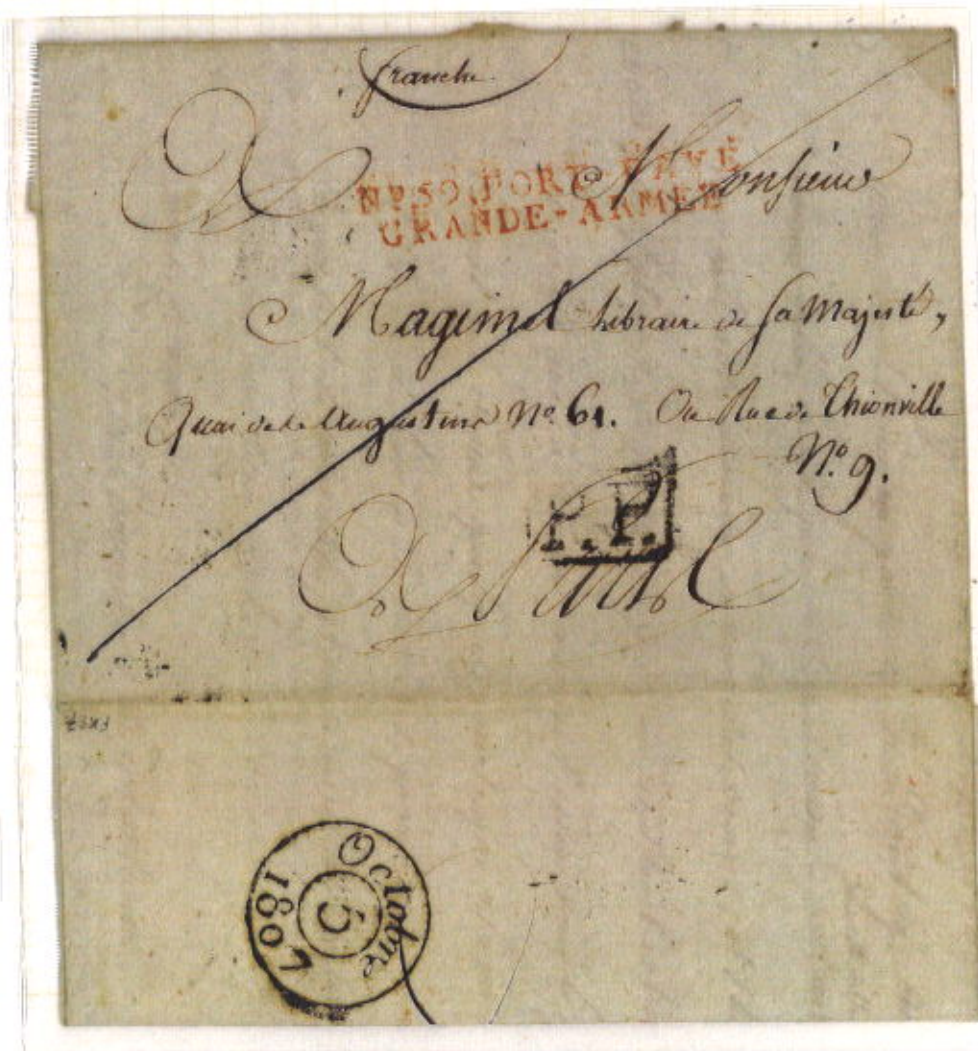 franche
A Monsieur
Nº 59. PORT-PAYÉ
GRANDE-ARMÉE
Magimel Libraire de Sa Majesté,
Quai des Augustins Nº. 61. Ou Rue de Thionville
Nº. 9.
P. P.
A Paris
Octobre
5
1807